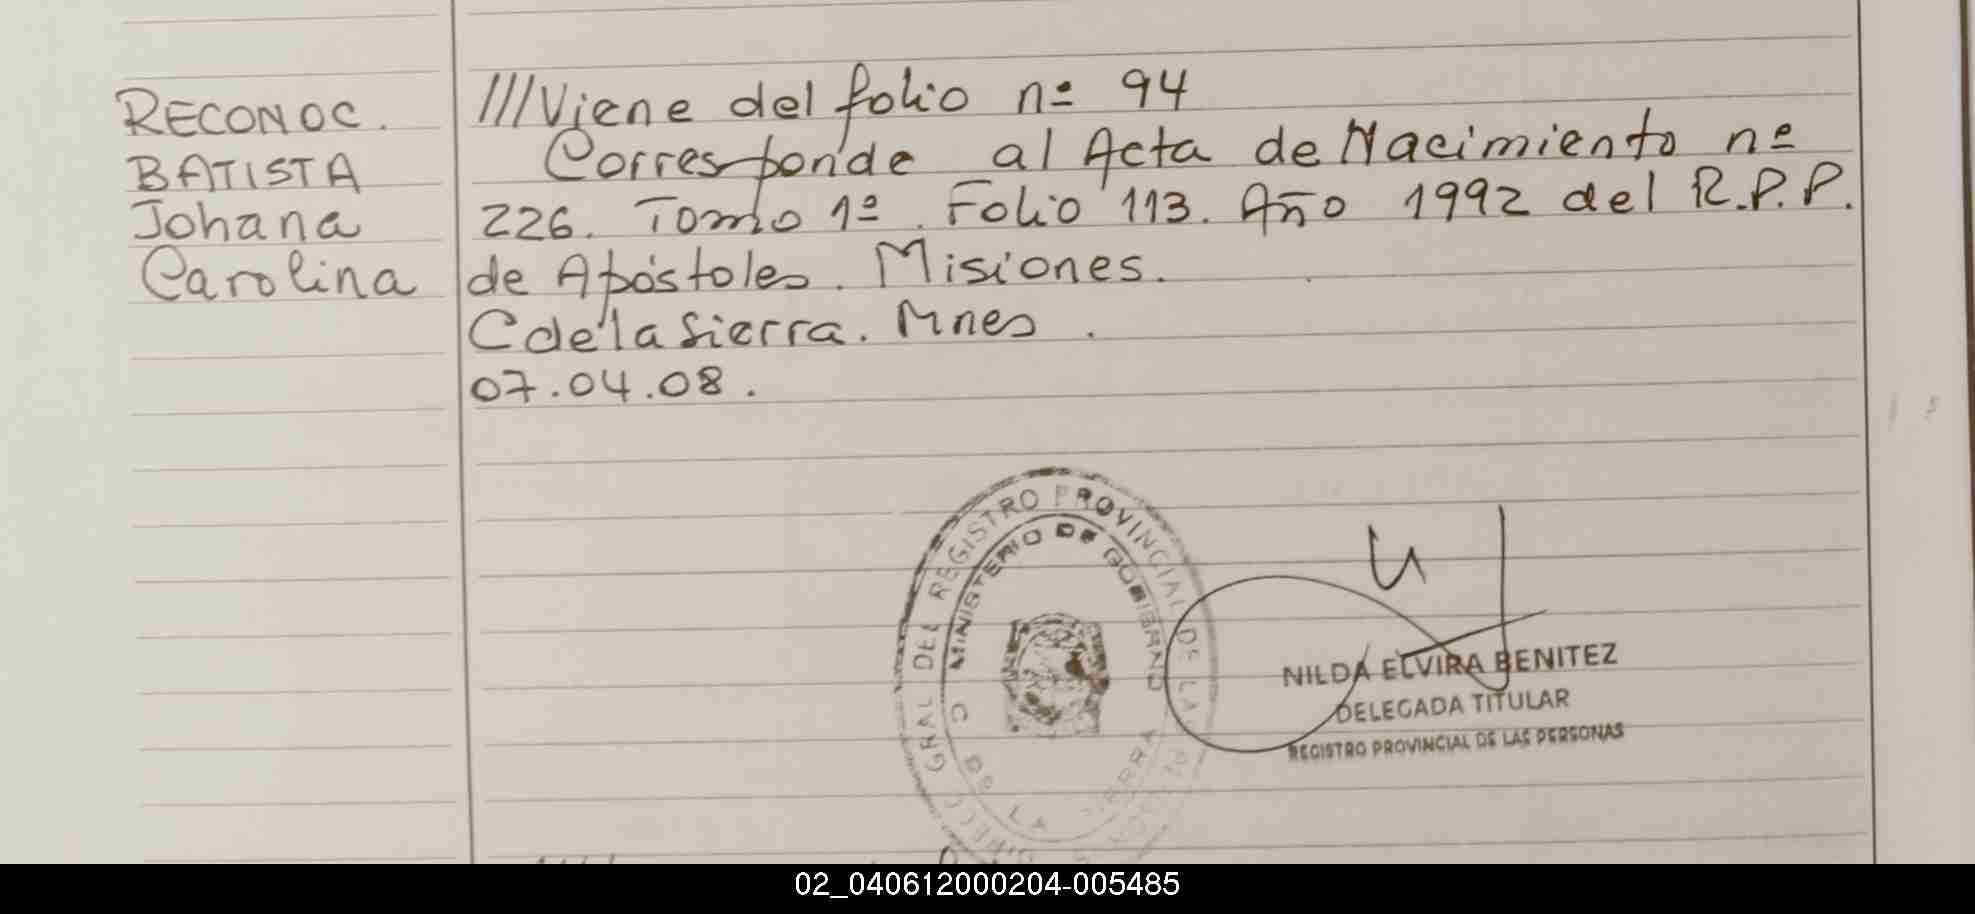 RECONOC.
BATISTA
Johana
Carolina
///Viene del folio nº 94
Corresponde al Acta de Nacimiento nº
226. Tomo 1º. Folio 113. Año 1992 del R.P.P.
de Apóstoles. Misiones.
C de la Sierra. Mnes.
07.04.08.
DIRECC GRAL DEL REGISTRO PROVINCIAL DE LAS
MINISTERIO DE GOBIERNO
C DE LA SIERRA
NILDA ELVIRA BENITEZ
DELEGADA TITULAR
REGISTRO PROVINCIAL DE LAS PERSONAS
02_040612000204-005485